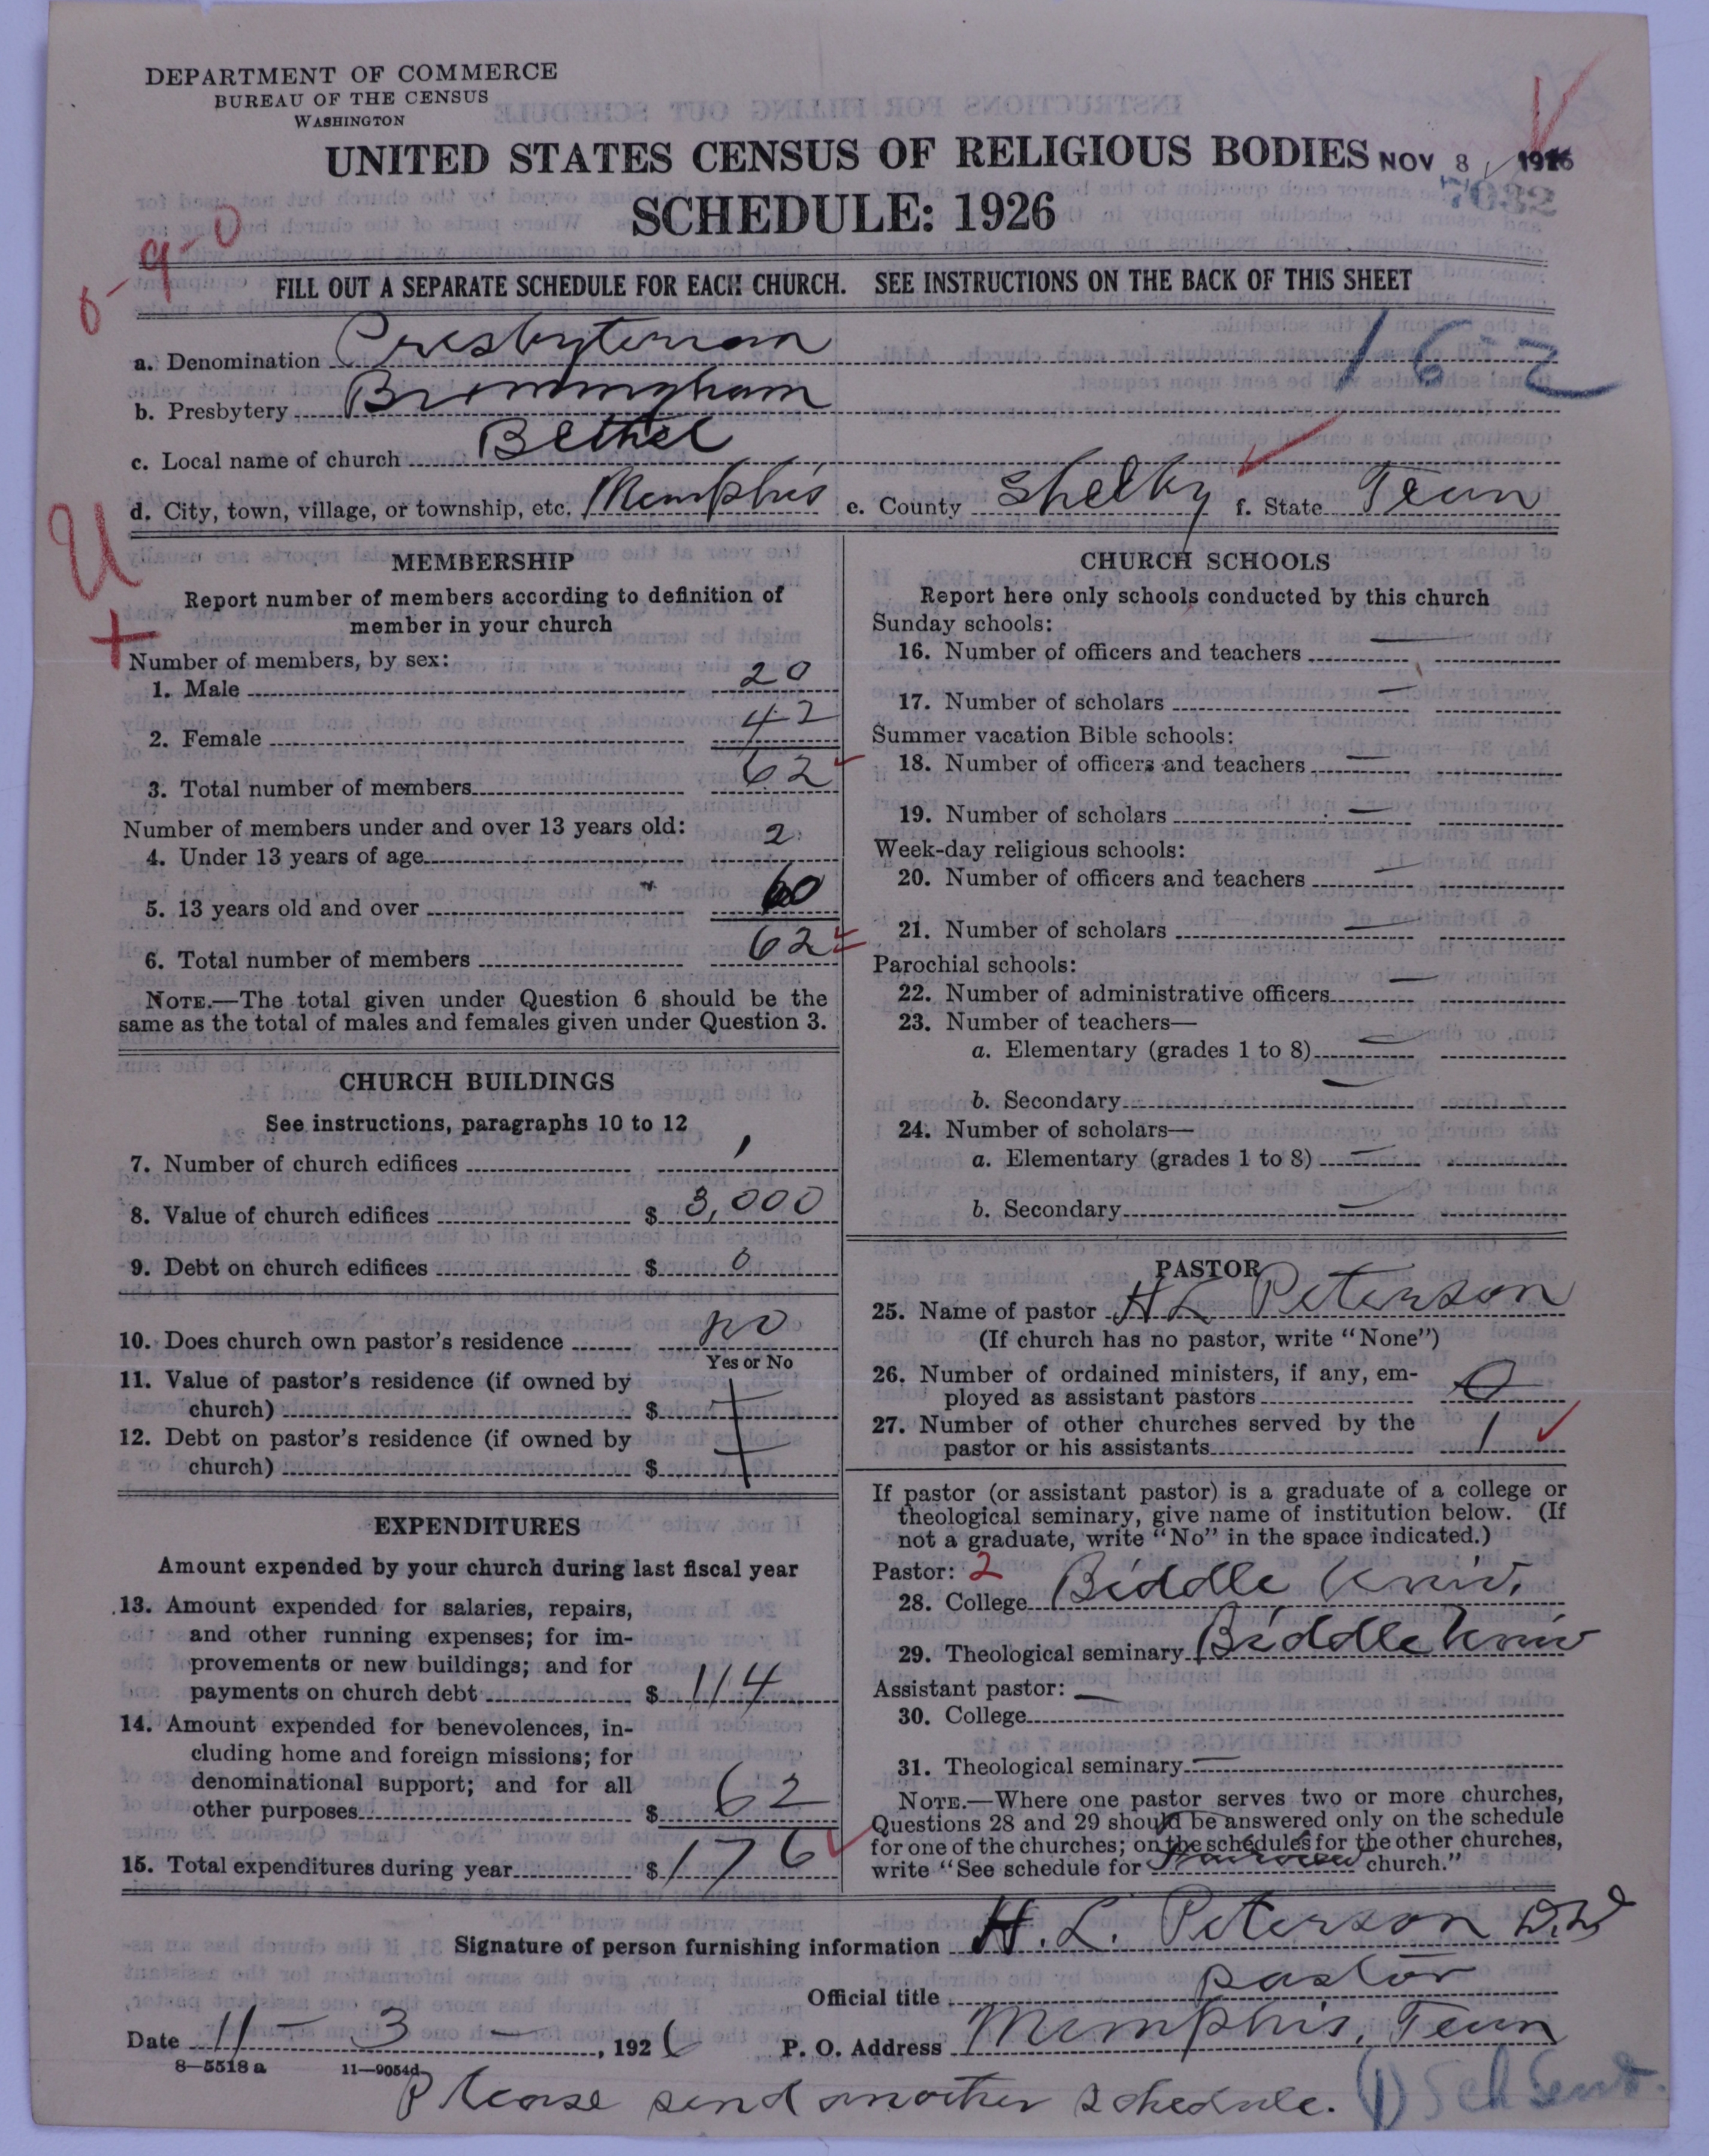 DEPARTMENT OF COMMERCE
BUREAU OF THE CENSUS
WASHINGTON
UNITED STATES CENSUS OF RELIGIOUS BODIES NOV 8 1926
7032
SCHEDULE: 1926
6-9-0
FILL OUT A SEPARATE SCHEDULE FOR EACH CHURCH. SEE INSTRUCTIONS ON THE BACK OF THIS SHEET
a. Denomination Presbyterian 162
b. Presbytery Birmingham
c. Local name of church Bethel
d. City, town, village, or township, etc. Memphis e. County Shelby f. State Tenn
U
+
MEMBERSHIP
Report number of members according to definition of
member in your church
Number of members, by sex:
1. Male 20
2. Female 42
3. Total number of members 62
Number of members under and over 13 years old:
4. Under 13 years of age 2
5. 13 years old and over 60
6. Total number of members 62
NOTE.—The total given under Question 6 should be the
same as the total of males and females given under Question 3.
CHURCH BUILDINGS
See instructions, paragraphs 10 to 12
7. Number of church edifices 1
8. Value of church edifices $ 3,000
9. Debt on church edifices $ 0
10. Does church own pastor's residence no
Yes or No
11. Value of pastor's residence (if owned by
church) $
12. Debt on pastor's residence (if owned by
church) $
EXPENDITURES
Amount expended by your church during last fiscal year
13. Amount expended for salaries, repairs,
and other running expenses; for im-
provements or new buildings; and for
payments on church debt $ 114
14. Amount expended for benevolences, in-
cluding home and foreign missions; for
denominational support; and for all
other purposes $ 62
15. Total expenditures during year $ 176
CHURCH SCHOOLS
Report here only schools conducted by this church
Sunday schools:
16. Number of officers and teachers —
17. Number of scholars —
Summer vacation Bible schools:
18. Number of officers and teachers —
19. Number of scholars —
Week-day religious schools:
20. Number of officers and teachers —
21. Number of scholars —
Parochial schools:
22. Number of administrative officers —
23. Number of teachers—
a. Elementary (grades 1 to 8) —
b. Secondary —
24. Number of scholars—
a. Elementary (grades 1 to 8) —
b. Secondary —
PASTOR
25. Name of pastor H L Peterson
(If church has no pastor, write "None")
26. Number of ordained ministers, if any, em-
ployed as assistant pastors 0
27. Number of other churches served by the
pastor or his assistants 1
If pastor (or assistant pastor) is a graduate of a college or
theological seminary, give name of institution below. (If
not a graduate, write "No" in the space indicated.)
Pastor: 2
28. College Biddle Univ.
29. Theological seminary Biddle Univ
Assistant pastor: —
30. College
31. Theological seminary —
NOTE.—Where one pastor serves two or more churches,
Questions 28 and 29 should be answered only on the schedule
for one of the churches; on the schedules for the other churches,
write "See schedule for church."
Signature of person furnishing information H. L. Peterson
Official title pastor
Date 11-3-, 1926 P. O. Address Memphis, Tenn
8-5518a 11-9054d
Please send another schedule. (1) Sch Sent.